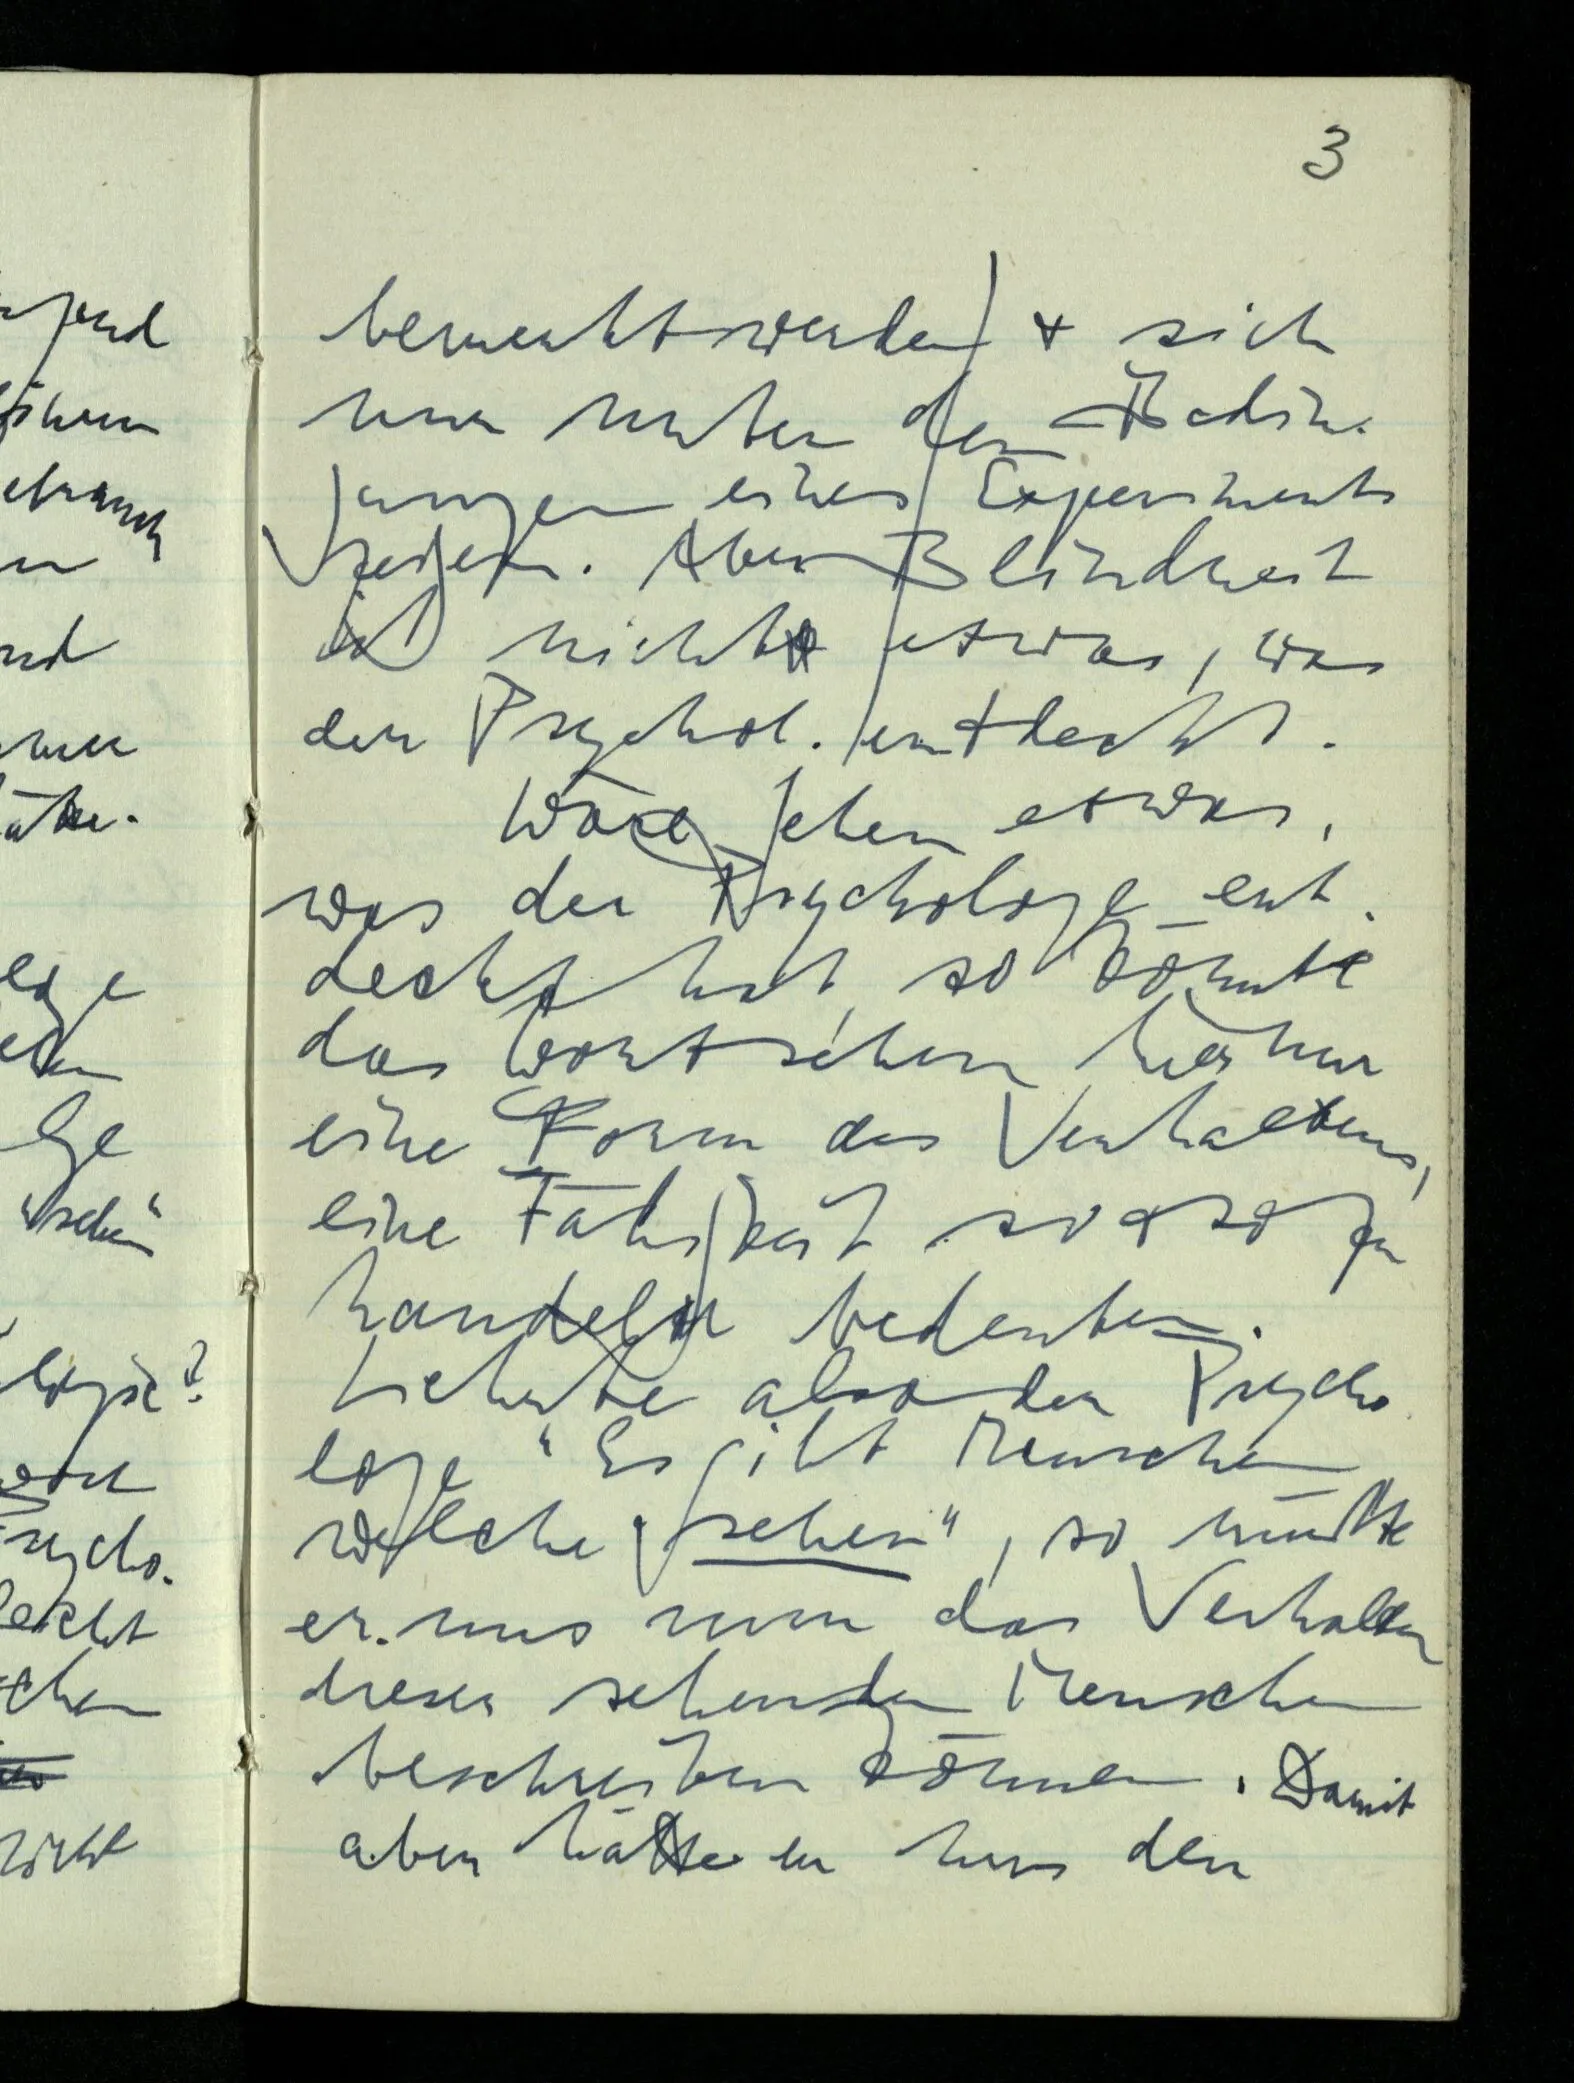 3
bemerkt werden & sich
nur unter den Bedin-
gungen eines Experiments
zeigen. Aber Blindheit
ist nicht etwas, was
der Psychol. entdeckt.
Wäre sehen etwas,
was der Psychologe ent-
deckt hat, so könnte
das Wort sehen nur
eine Form des Verhaltens,
eine Fähigkeit so & so zu
handeln bedeuten.
Lehrte also der Psycho-
loge "Es gibt Menschen
welche sehen", so müßte
er uns nun das Verhalten
dieser sehenden Menschen
beschreiben können. Damit
aber hätte er uns den